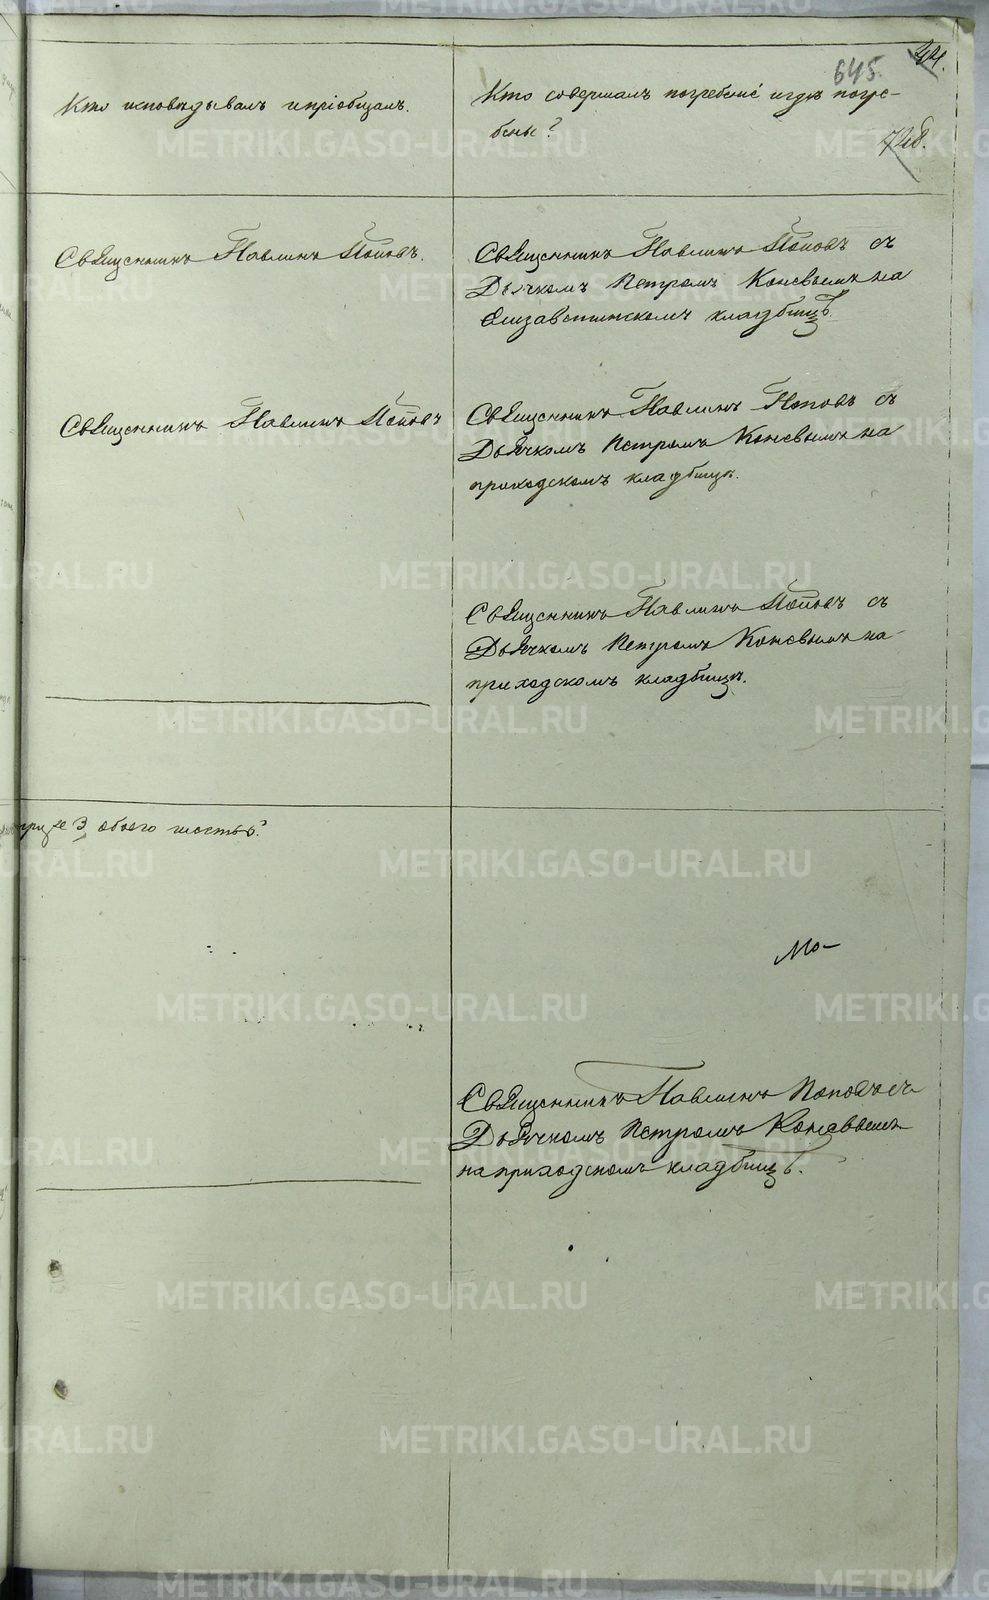 645.
Кто исповѣдывалъ и пріобщалъ.
Кто совершалъ погребеніе и гдѣ погре-
бены?
Священникъ Павлинъ Поповъ.
Священникъ Павлинъ Поповъ съ
Дьячкомъ Петромъ Коневымъ на
Елизаветинскомъ кладбищѣ.
Священникъ Павлинъ Поповъ
Священникъ Павлинъ Поповъ съ
Дьячкомъ Петромъ Коневымъ на
приходскомъ кладбищѣ.
Священникъ Павлинъ Поповъ съ
Дьячкомъ Петромъ Коневымъ на
приходскомъ кладбищѣ.
3, обоего шесть.
Мо-
Священникъ Павлинъ Поповъ съ
Дьячкомъ Петромъ Коневымъ
на приходскомъ кладбищѣ.
METRIKI.GASO-URAL.RU